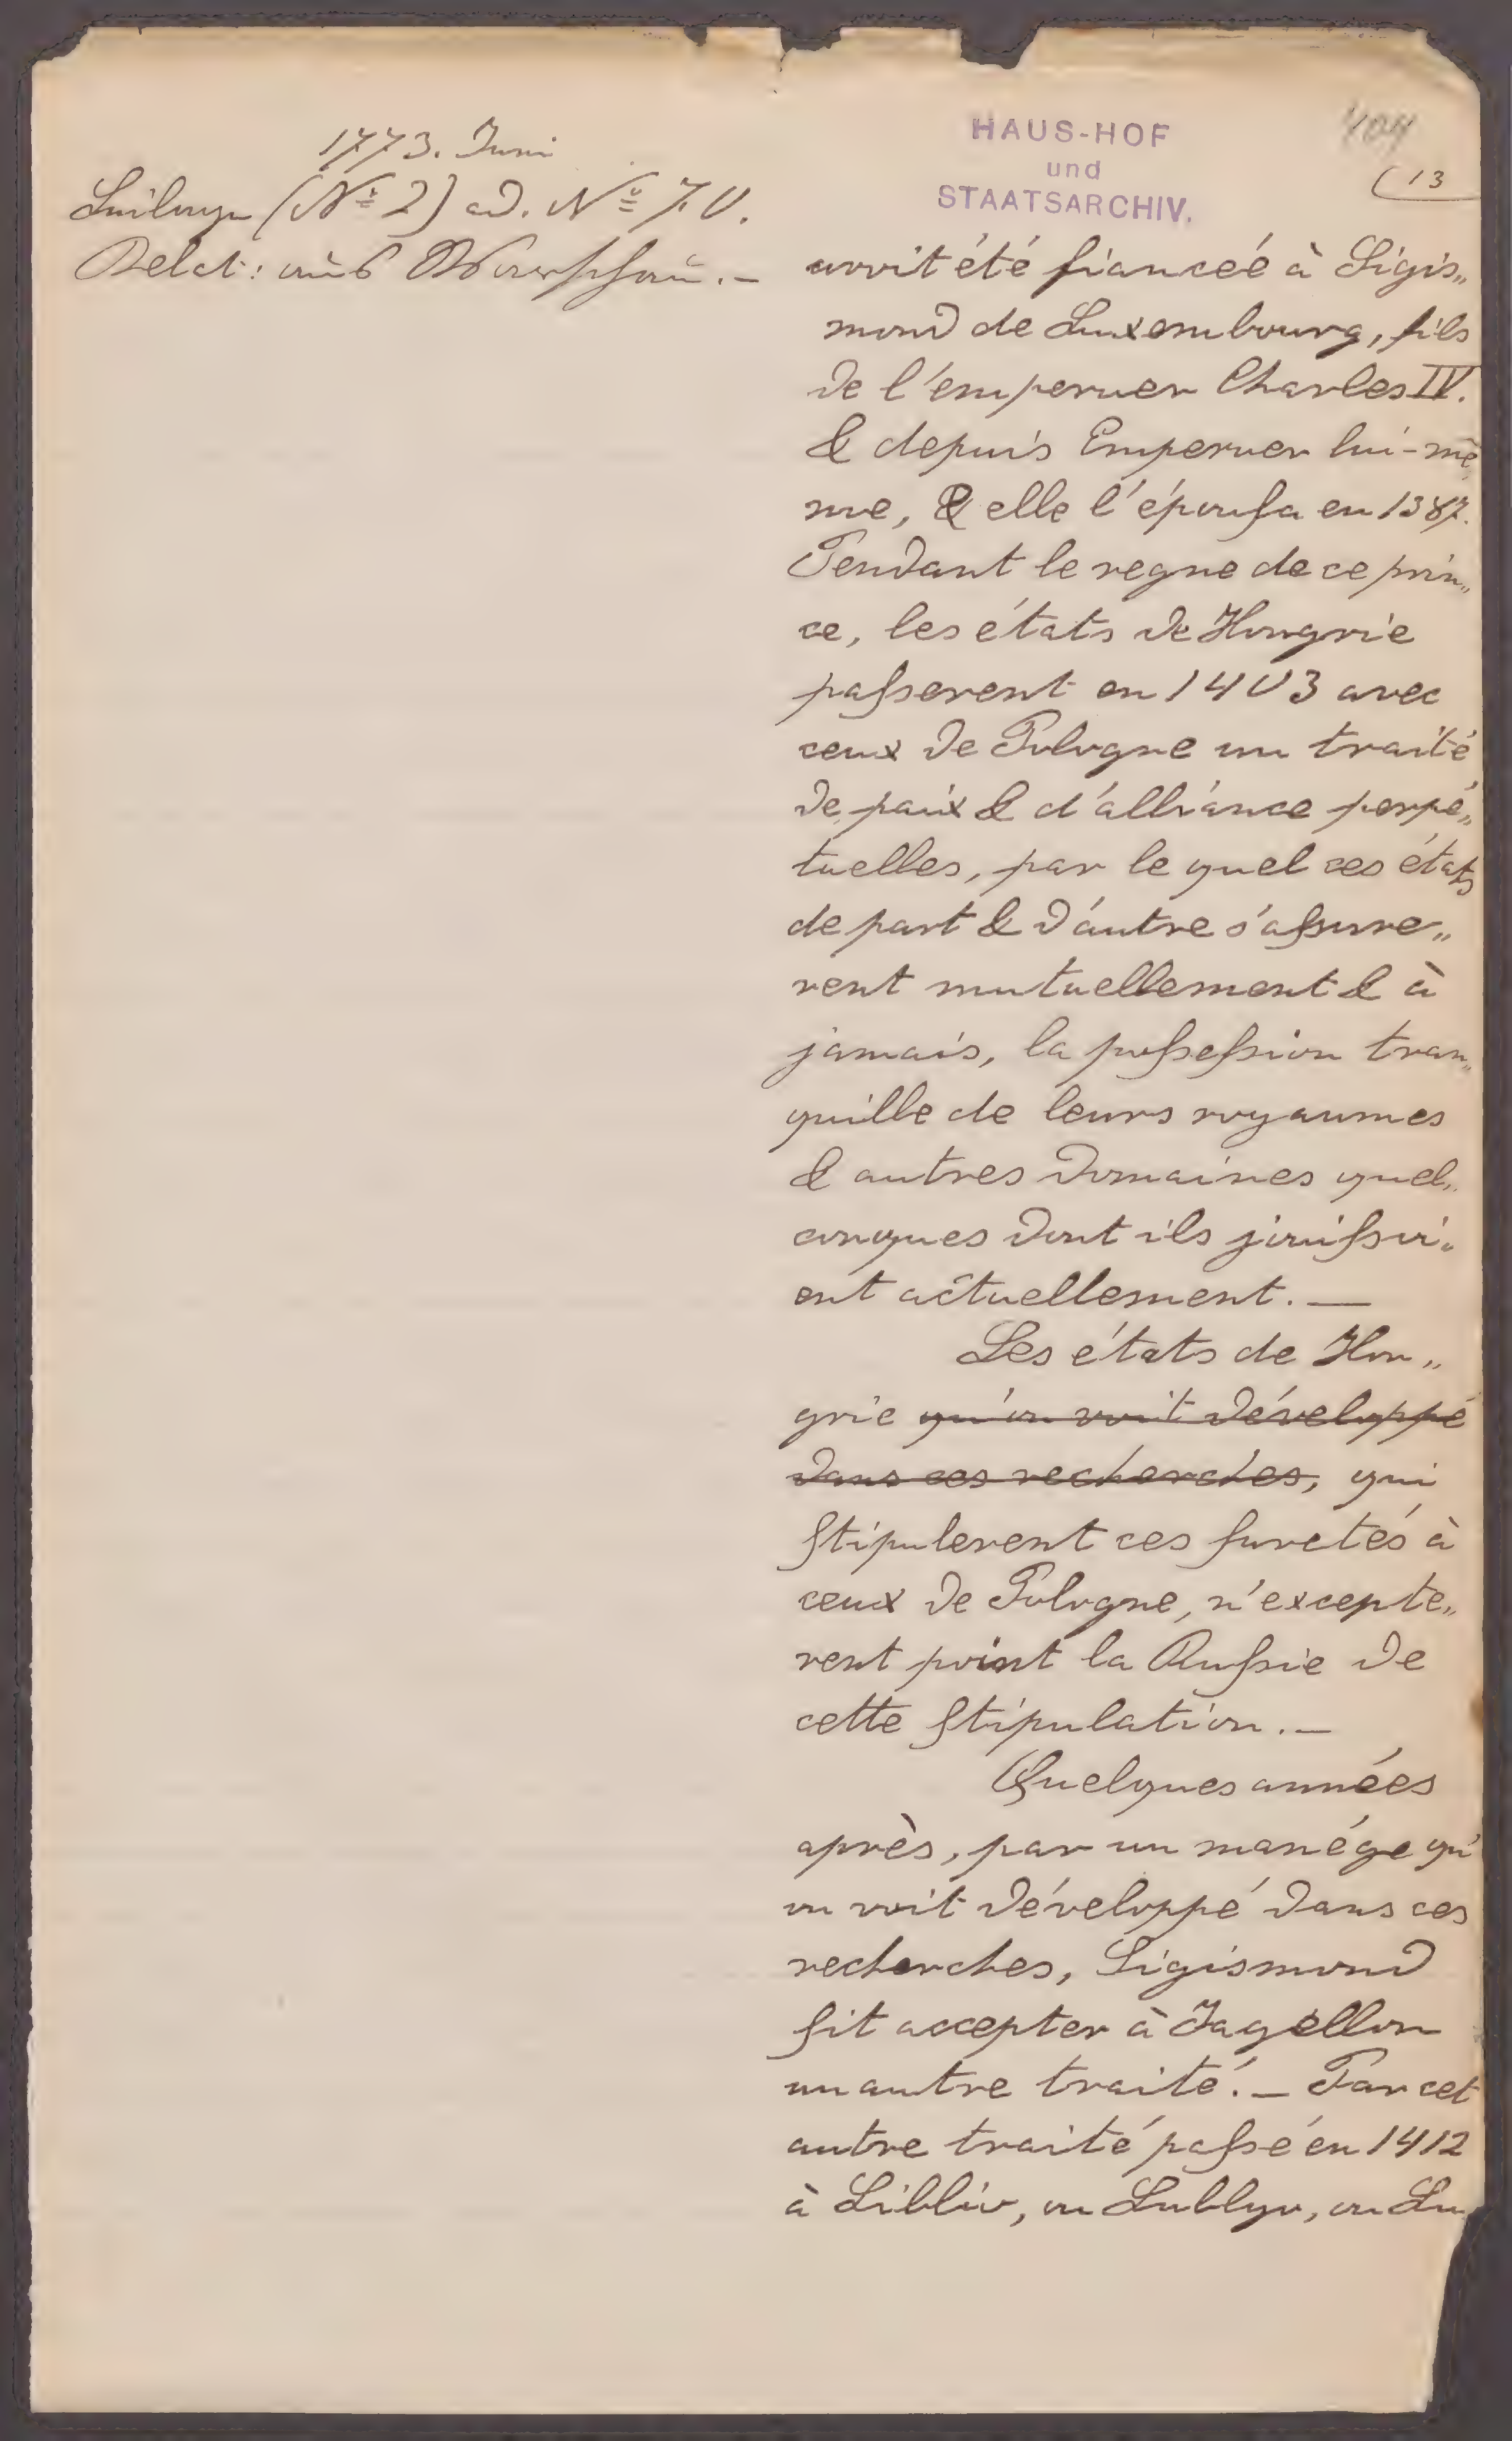 1773. Juni
Beilage (№ 2) ad. № 70.
Relat: aus Warschau.–
HAUS-HOF
und
STAATSARCHIV.
404
(13
avoit été fianceé à Sigis„
mond de Luxembourg, fils
de l'emperuer Charles IV.
& depuis Emperuer lui-mê
me, & elle l'épousa en 1387.
Pendant le regne de ce prin„
ce, les états de Hongrie
passerent en 1403 avec
ceux de Pologne un traité
de paix & d'alliance perpé„
tuelles, par le quel ces états
de part & d'autre s'assure„
rent mutuellement & à
jamais, la possession tran„
quille de leurs royaumes
& autres domaines quel„
conques dont ils jouissoi„
ent actuellement. —
Les états de Hon„
grie qu'on voit développé
dans ces recherches, qui
stipulerent ces suretés à
ceux de Pologne, n'excepte„
rent point la Russie de
cette stipulation.–
Quelques années
après, par un manége qu'
on voit développé dans ces
recherches, Sigismond
fit accepter à Jagellon
un autre traité. – Par cet
autre traité passé en 1412
à Liblio, ou Lublyo, ou Lu